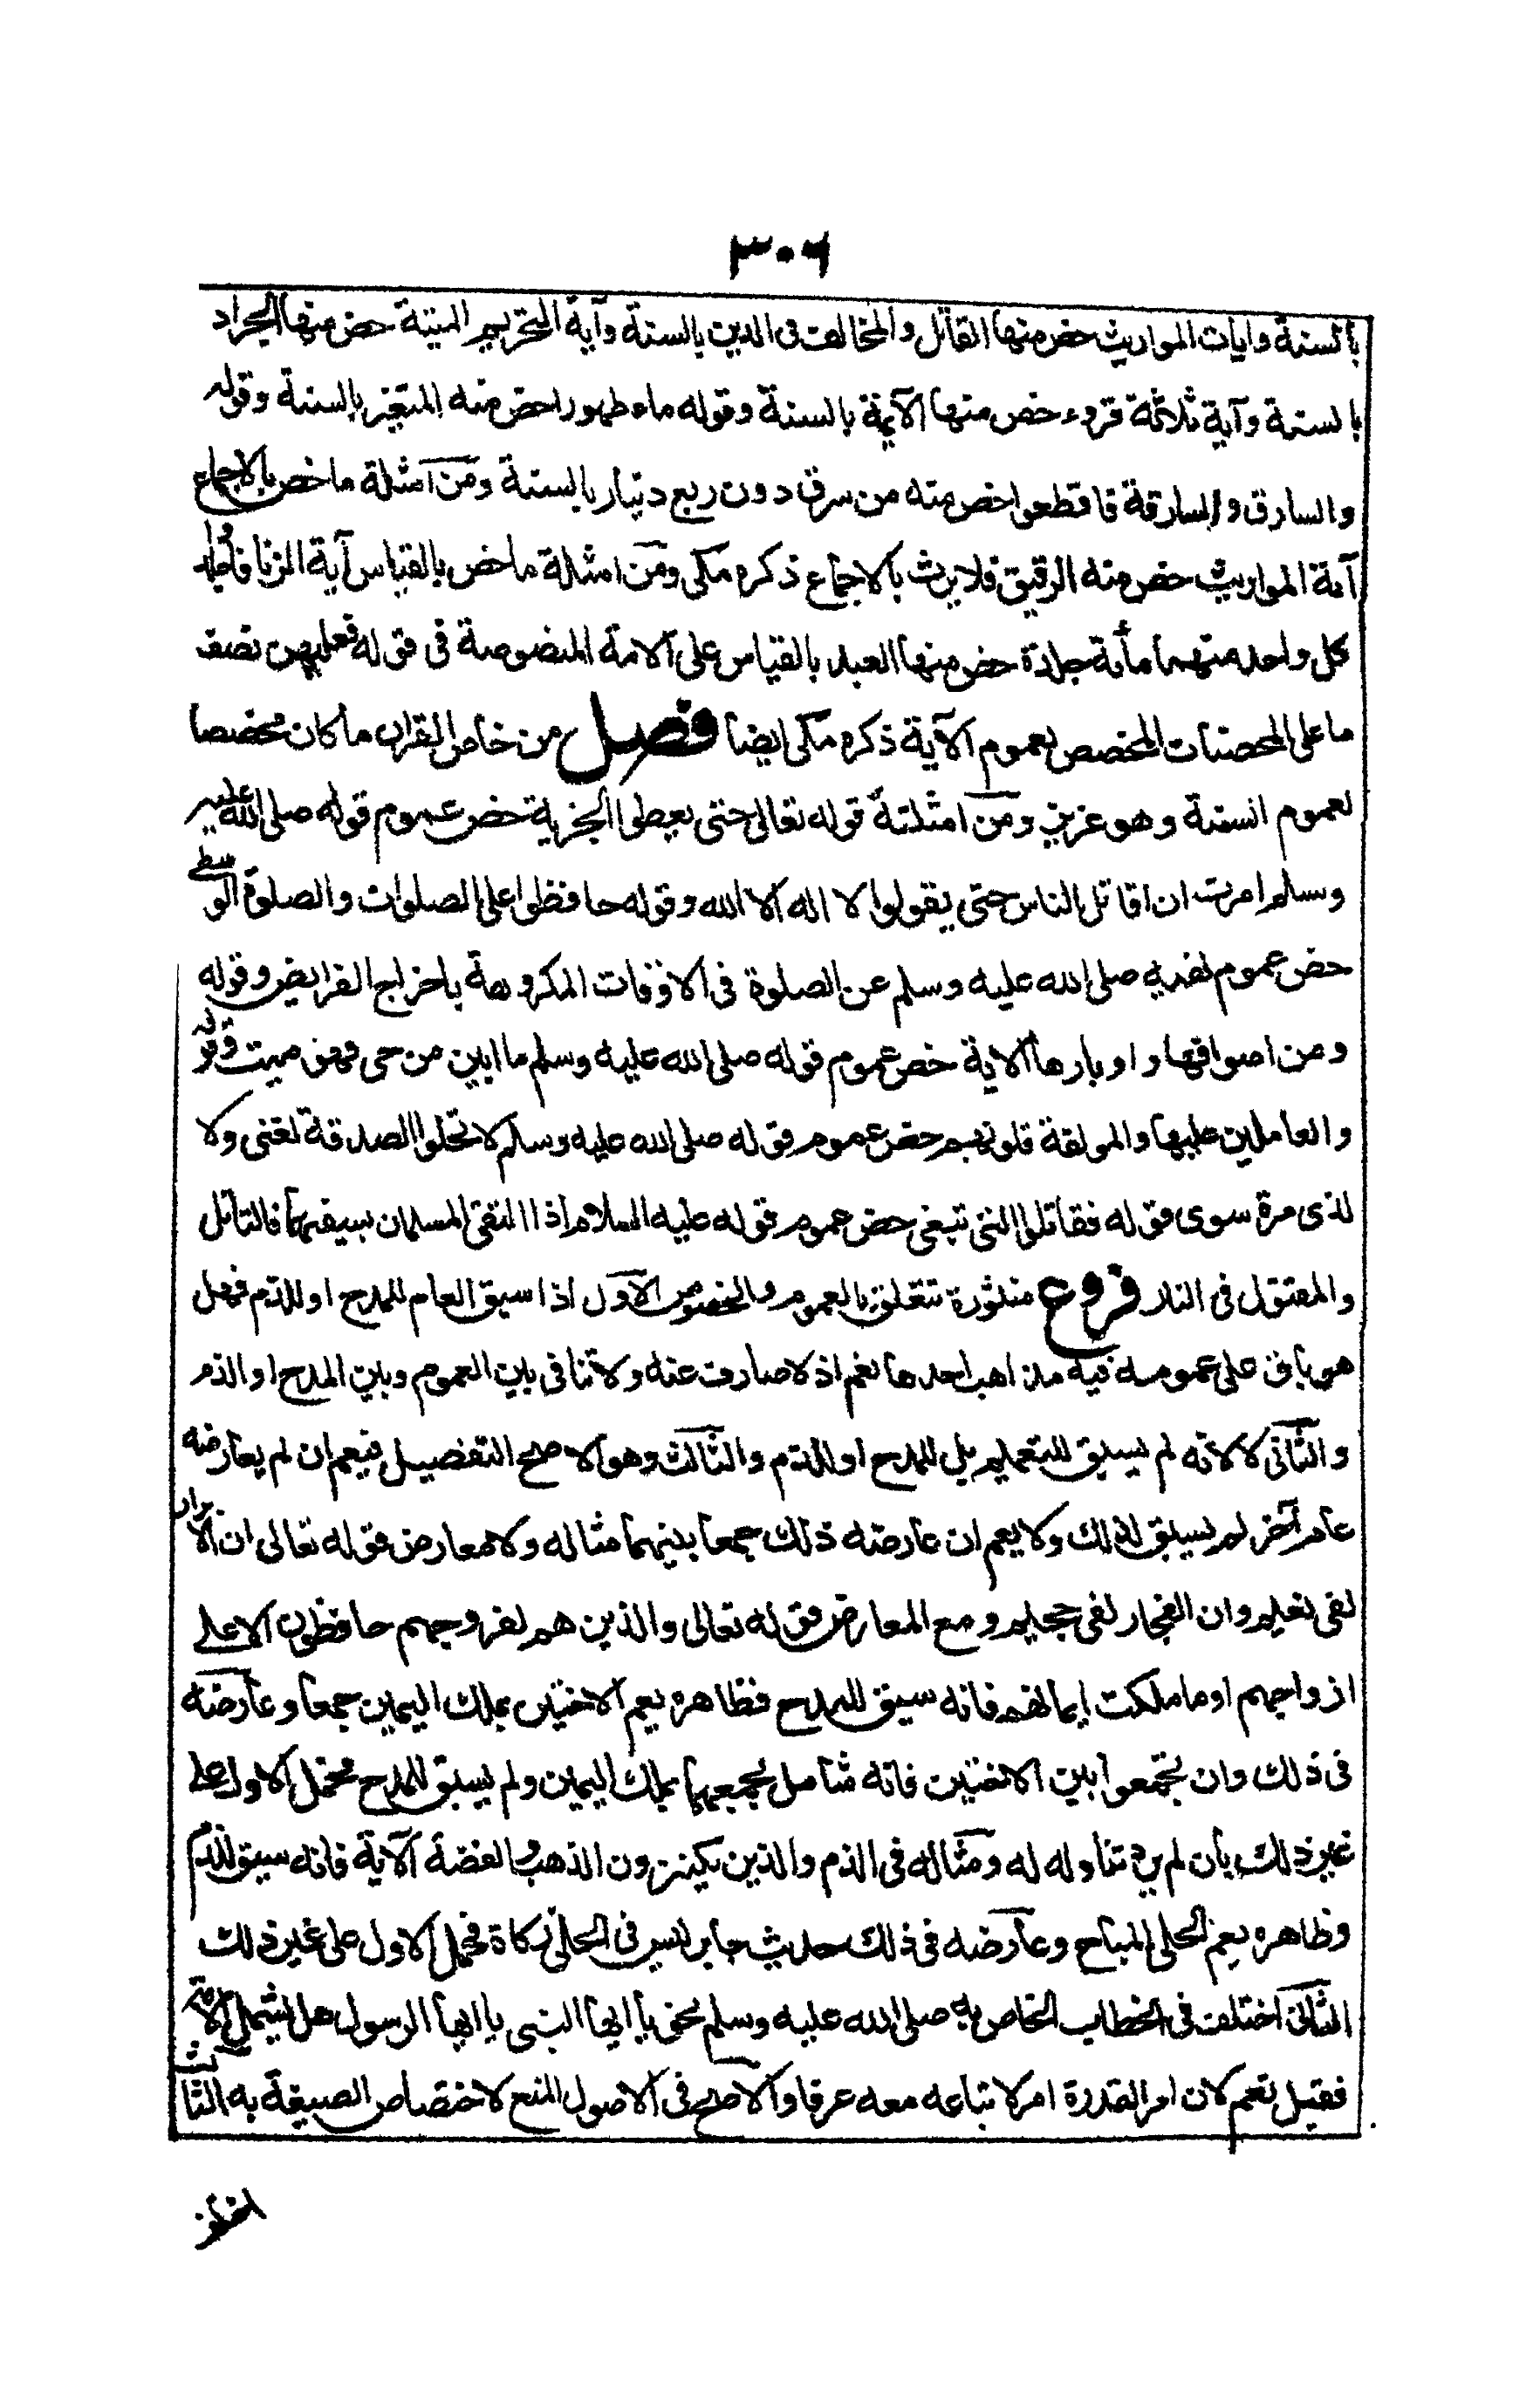 ٣٠٦
بالسنة وايات المواريث خص منها القاتل والمخالف فى الدين بالسنة وآية التحريم الميتة خص منها الجراد
بالسنة وآية ثلاثة قروء خص منها الآيمة بالسنة وقوله ماء طهورا خص منه المتغير بالسنة وقوله
والسارق والسارقة فاقطعوا خص منه من سرق دون ربع دينار بالسنة ومن امثلة ما خص بالاجماع
آية المواريث خص منه الرقيق فلا يرث بالاجماع ذكره مكى ومن امثلة ما خص بالقياس آية الزنا فاجلدوا
كل واحد منهما مأية جلدة خص منها العبد بالقياس على الامة المنصوصة فى قوله فعليهن نصف
ما على المحصنات المخصص لعموم الآية ذكره مكى ايضا فصل من خاص القران ما كان مخصصا
لعموم السنة وهو عزيز ومن امثلته قوله تعالى حتى يعطوا الجزية خص عموم قوله صلى الله عليه
وسلم امرت ان اقاتل الناس حتى يقولوا لا اله الا الله وقوله حافظوا على الصلوات والصلوة الوسطى
خص عموم نهيه صلى الله عليه وسلم عن الصلوة فى الاوقات المكروهة باخراج الفرايض وقوله
ومن اصوافها واوبارها الاية خص عموم قوله صلى الله عليه وسلم ما ابين من حى فهو ميت وقوله
والعاملين عليها والمولفة قلوبهم خص عموم قوله صلى الله عليه وسلم لا تحلوا الصدقة لغنى ولا
لذى مرة سوى قوله فقاتلوا التى تبغى خص عموم قوله عليه السلام اذا التقى المسلمان بسيفهما فالقاتل
والمقتول فى النار فروع منثورة تتعلق بالعموم والخصوص الاول اذا سيق العام للمدح او للذم فهل
هو باق على عمومه فيه مذاهب احدها نعم اذ لا صارف عنه ولا تنافى بين العموم وبين المدح او الذم
والثانى لا لانه لم يسيق للتعميم بل للمدح او للذم والثالث وهو الاصح التفصيل فيعم ان لم يعارضه
عام آخر لم يسيق لذلك ولا يعم ان عارضه ذلك جمعا بينهما مثاله ولا معارض قوله تعالى ان الابرار
لفى نعيم وان الفجار لفى جحيم ومع المعارض قوله تعالى والذين هم لفروجهم حافظون الا على
ازواجهم او ما ملكت ايمانهم فانه سيق للمدح فظاهره يعم الاختين بملك اليمين جمعا وعارضه
فى ذلك وان تجمعوا بين الاختين فانه شامل لجمعهما بملك اليمين ولم يسيق للمدح فحمل الاول على
غير ذلك بأن لم يرد تناوله له ومثاله فى الذم والذين يكنزون الذهب والفضة الآية فانه سيق للذم
وظاهره يعم الحلى المباح وعارضه فى ذلك حديث جابر ليس فى الحلى زكاة فحمل الاول على غير ذلك
الثانى اختلف فى الخطاب الخاص به صلى الله عليه وسلم نحو يا ايها النبى يا ايها الرسول هل يشمل الامة
فقيل نعم لان امر القدرة امر لاتباعه معه عرفا والاصح فى الاصول المنع لاختصاص الصيغة به الثالث